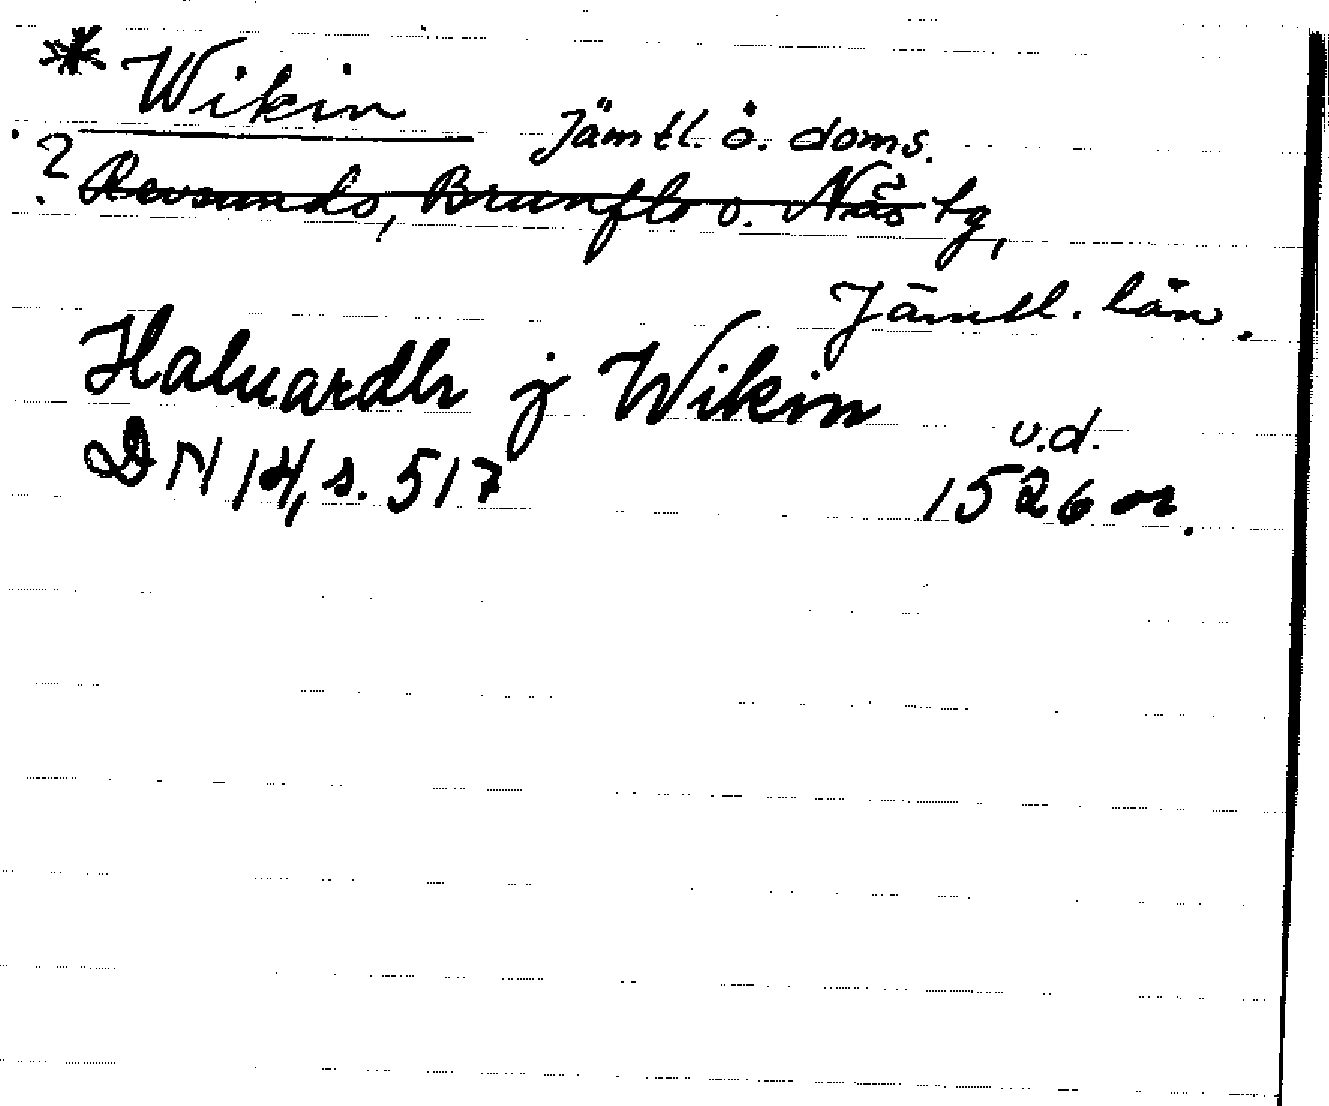 * Wikin Jämtl. ö. doms.
? Revsunds, Brunflo o. Näs tg,
Jämtl. län.
Haluardh j Wikin
DN 14, s. 517 u.d.
1526 or.